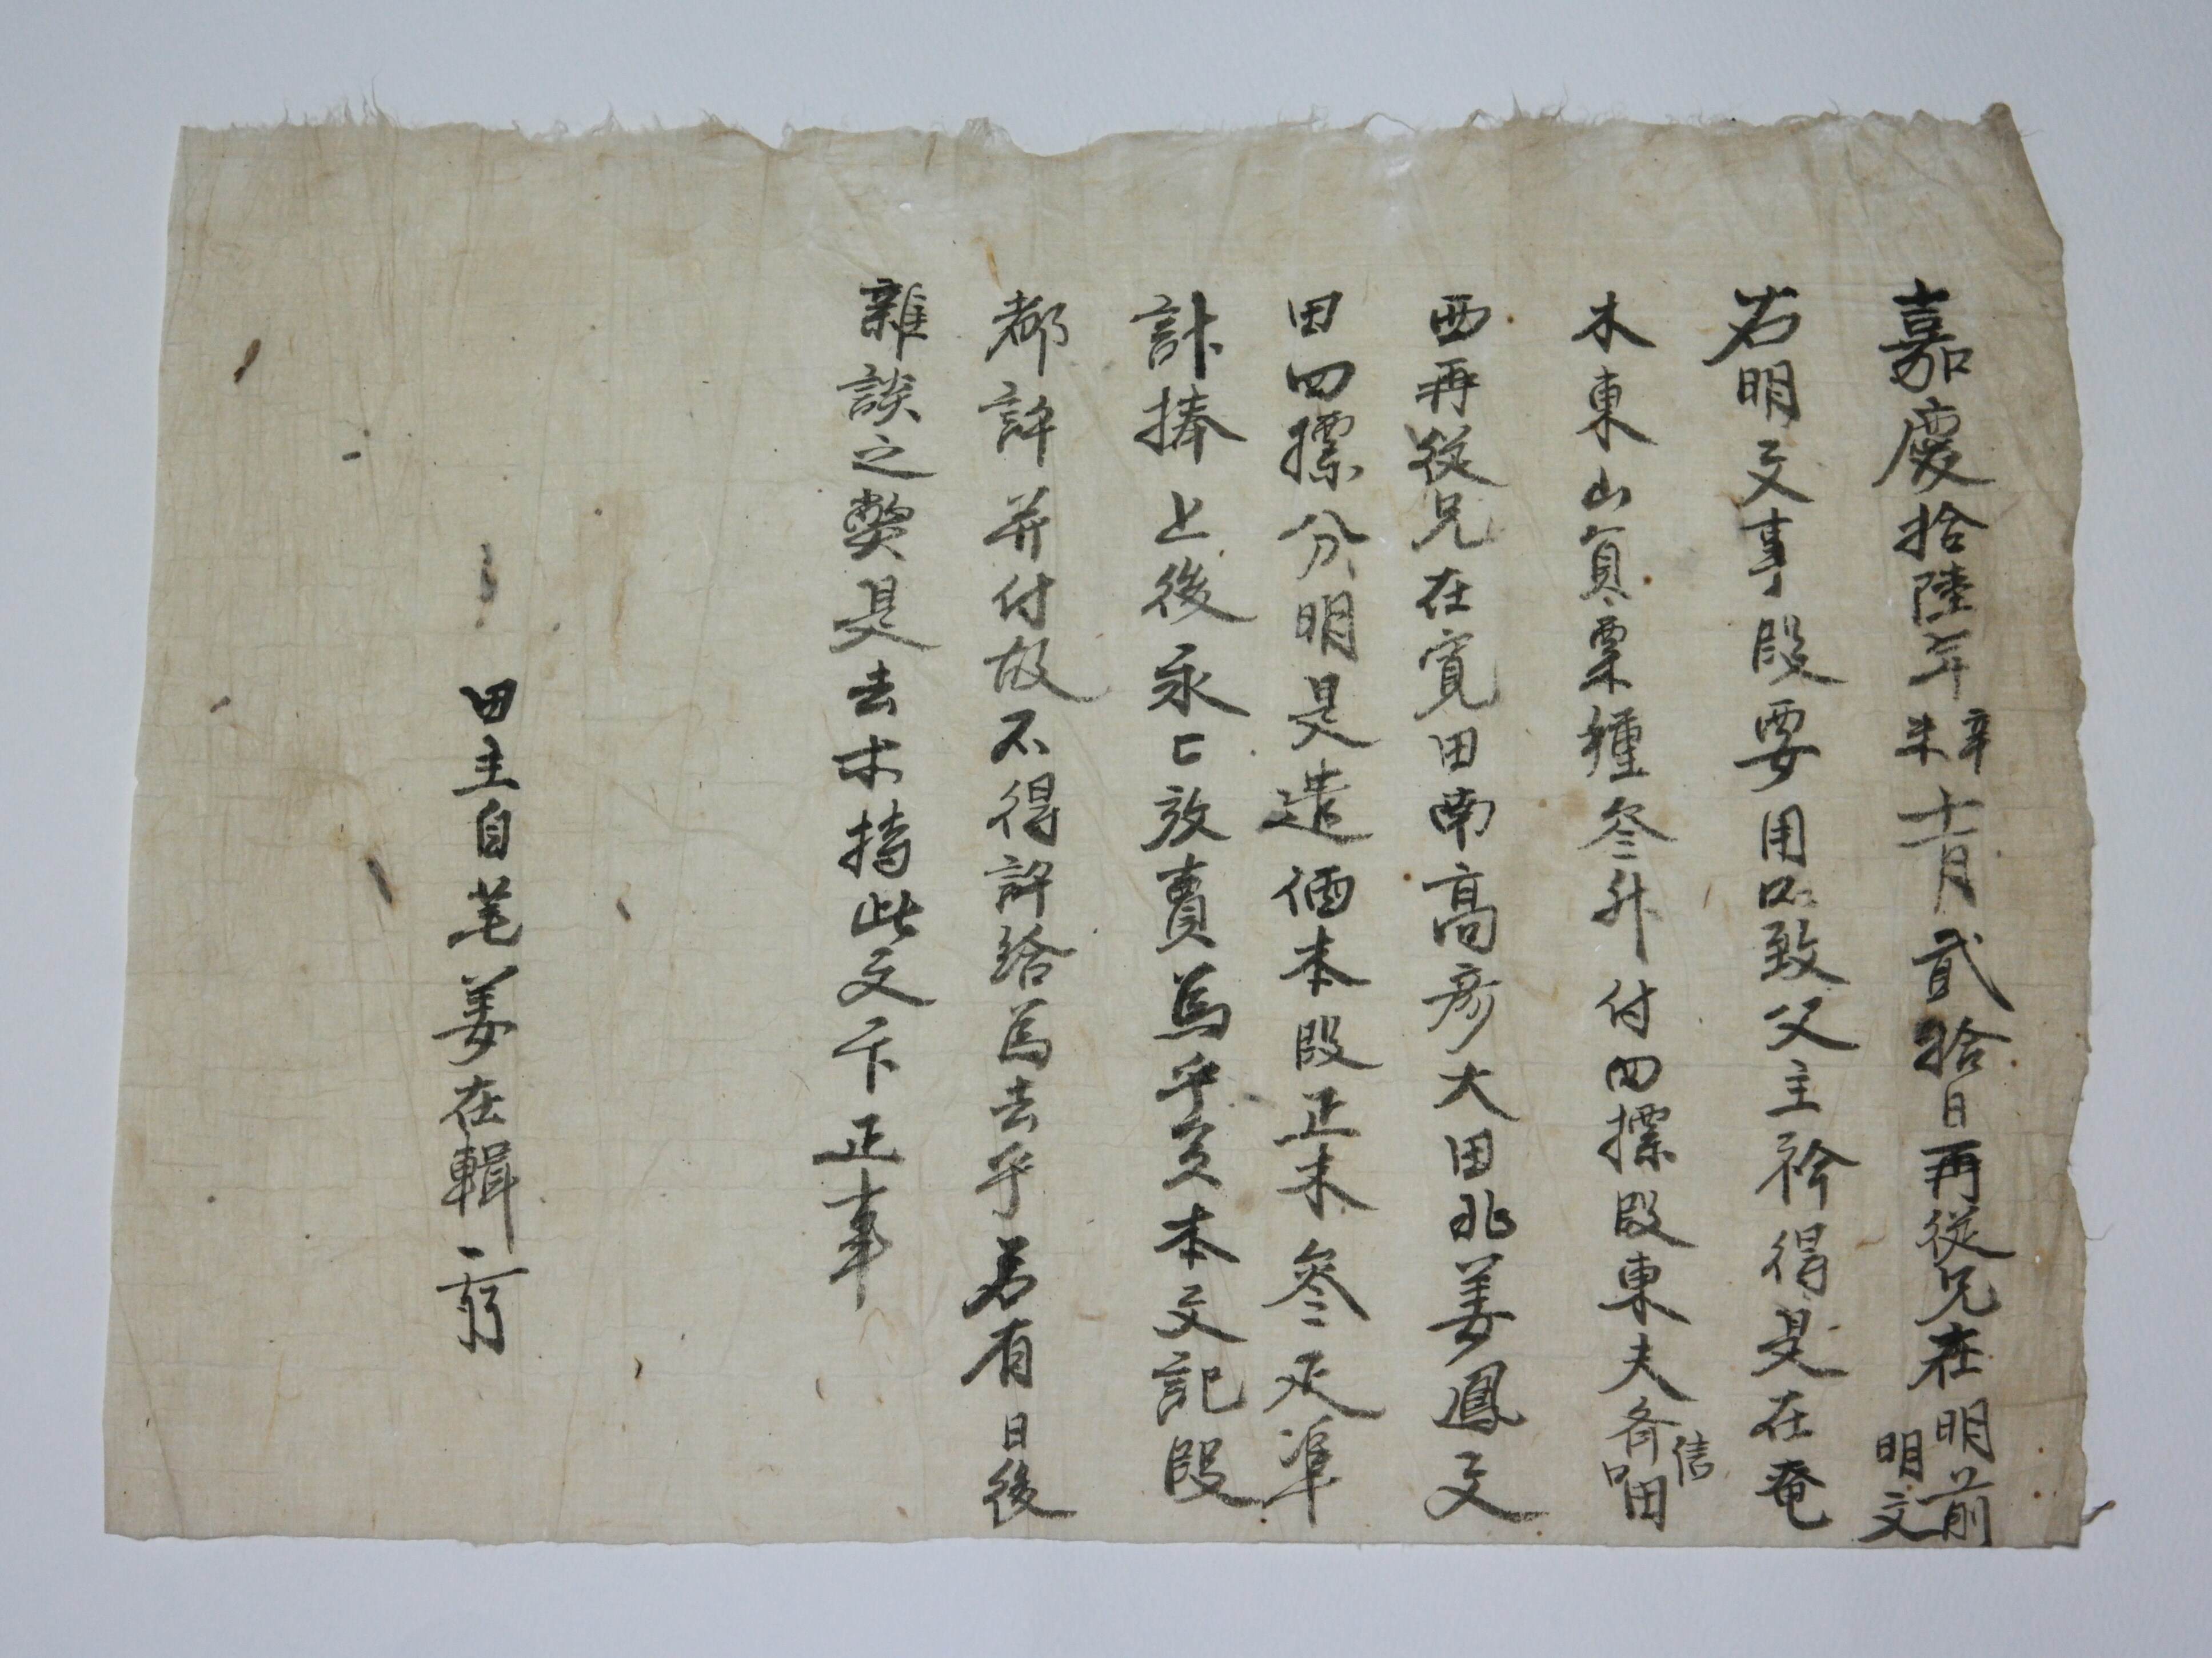 嘉慶拾陸年辛未十一月貳拾日再從兄在明前明文
右明文事段要用所致父主衿得是在奄
木東山員粟種參升付四標段東夫斉信畓田
西再從兄在寬田南高彦大田北姜鳳文
田四標分明是遣価本段正木參疋準
計捧上後永永放賣爲乎矣本文記段
都許并付故不得許給爲去乎若有日後
雜談之弊是去木持此文卞正事
田主自笔姜在輯